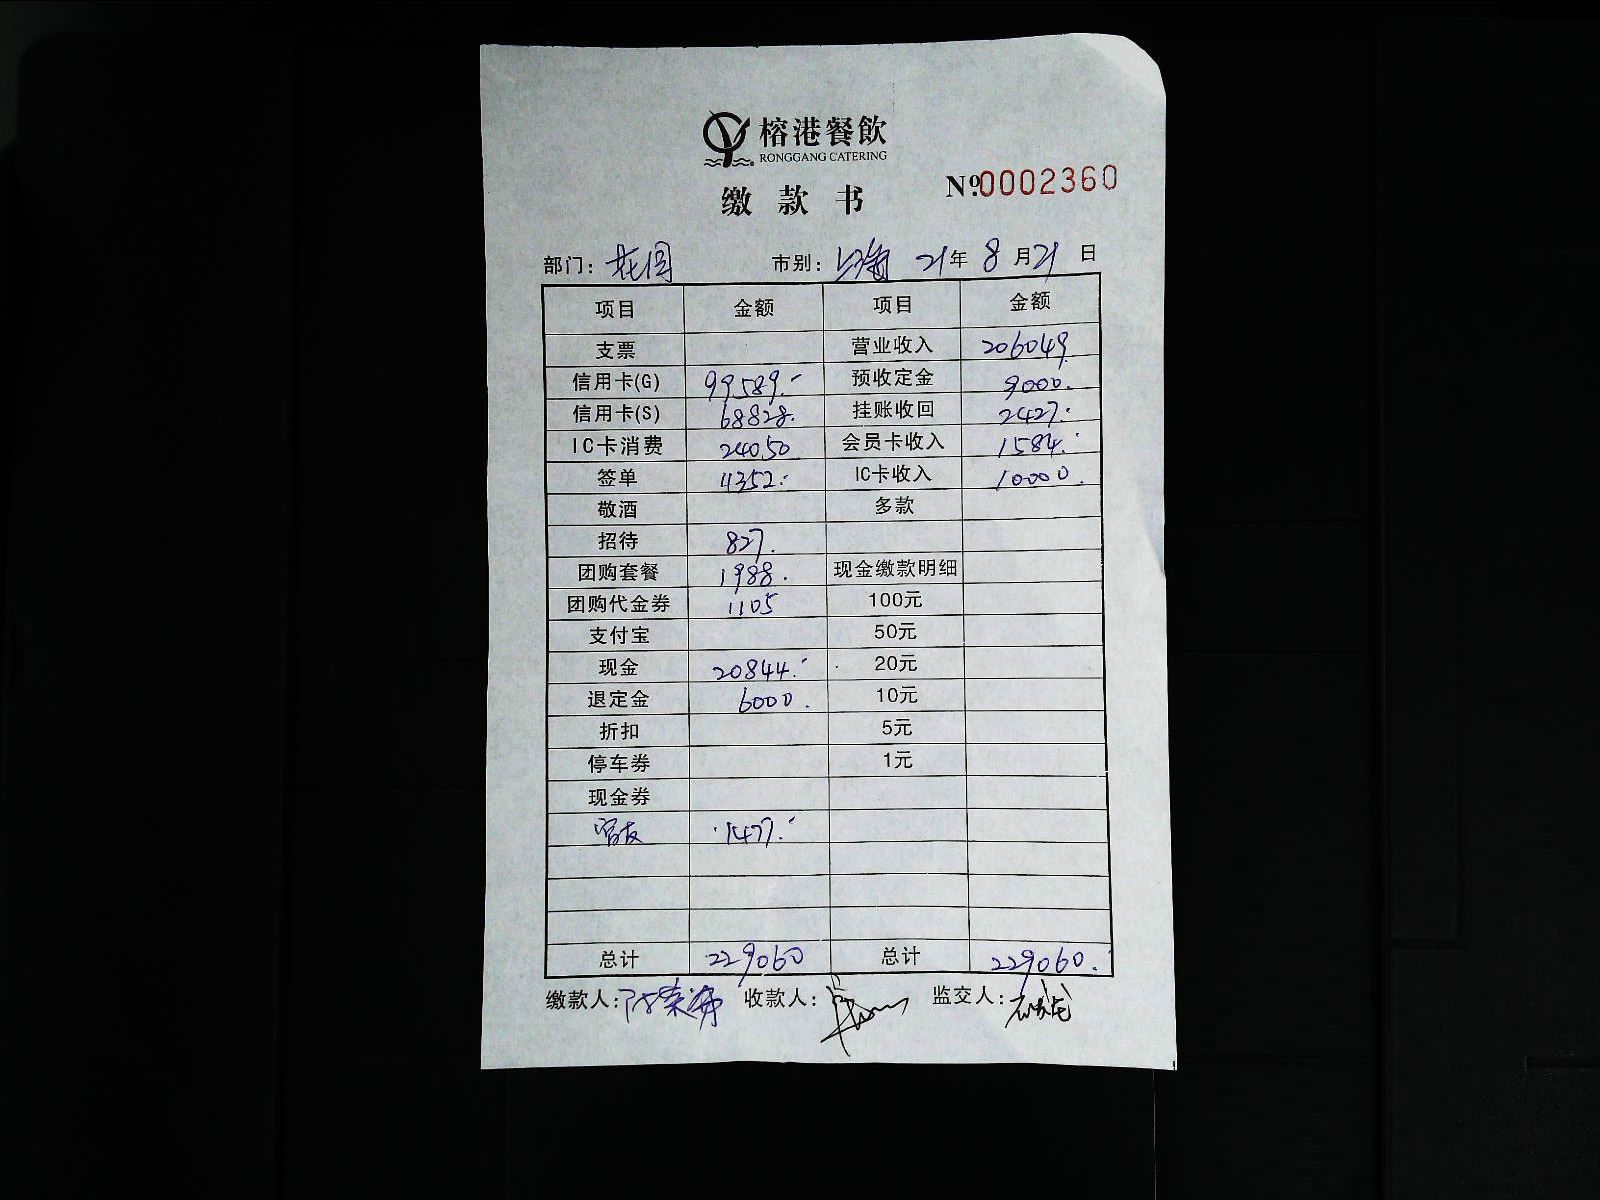 榕港餐飲
RONGGANG CATERING
缴款书
№0002360
部门：花园 市别：上海 21年8月21日
项目 金额 项目 金额
支票 营业收入 206049.
信用卡(G) 99589.- 预收定金 9000.
信用卡(S) 68828. 挂账收回 2427.-
IC卡消费 24050 会员卡收入 1584.-
签单 4352.- IC卡收入 10000.
敬酒 多款
招待 827.
团购套餐 1988. 现金缴款明细
团购代金券 1105 100元
支付宝 50元
现金 20844.- 20元
退定金 6000. 10元
折扣 5元
停车券 1元
现金券
1477.-
总计 229060 总计 229060.
缴款人： 收款人： 监交人：